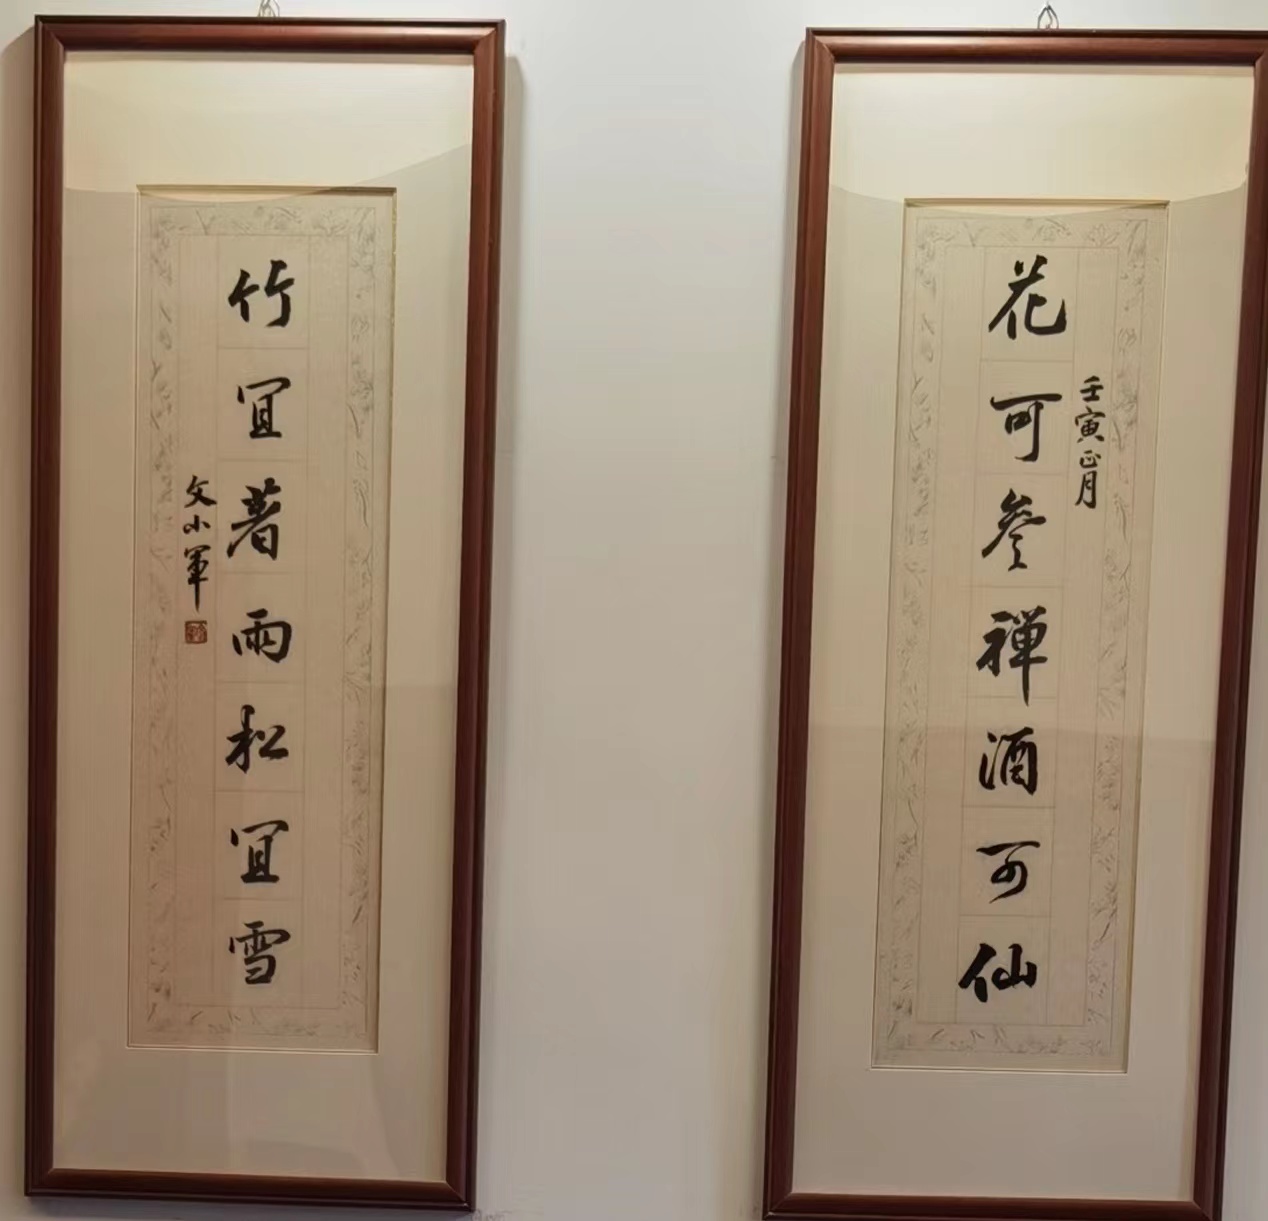 壬寅正月
花可參禪酒可仙
竹宜著雨松宜雪
文小軍